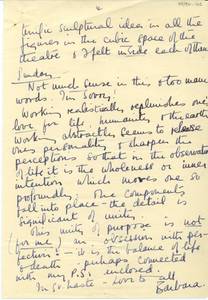 terrific sculptural idea in all the
figures in the cubic space of the
theatre & I felt inside each of them
Sunday
Not much sense in this & too many
words. I'm Sorry!
Working realistically replenishes one's
love for life, humanity & the earth
Working abstractly seems to release
ones personality & sharpen the
perceptions so that in the observation
of life it is the wholeness or inner
intention which moves one so
profoundly. The components
fall into place — the detail is
significant of unity.
This unity of purpose is not
(for me) an obsession with per-
fection: — it is the balance of life
& death — perhaps connected
with my P.S. enclosed.
In gt. haste — Love to all
Barbara